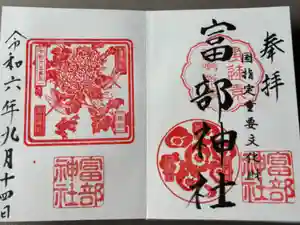 奉拝
国指定重要文化財
富部神社
富部
神社
令和六年九月十四日
富部
神社